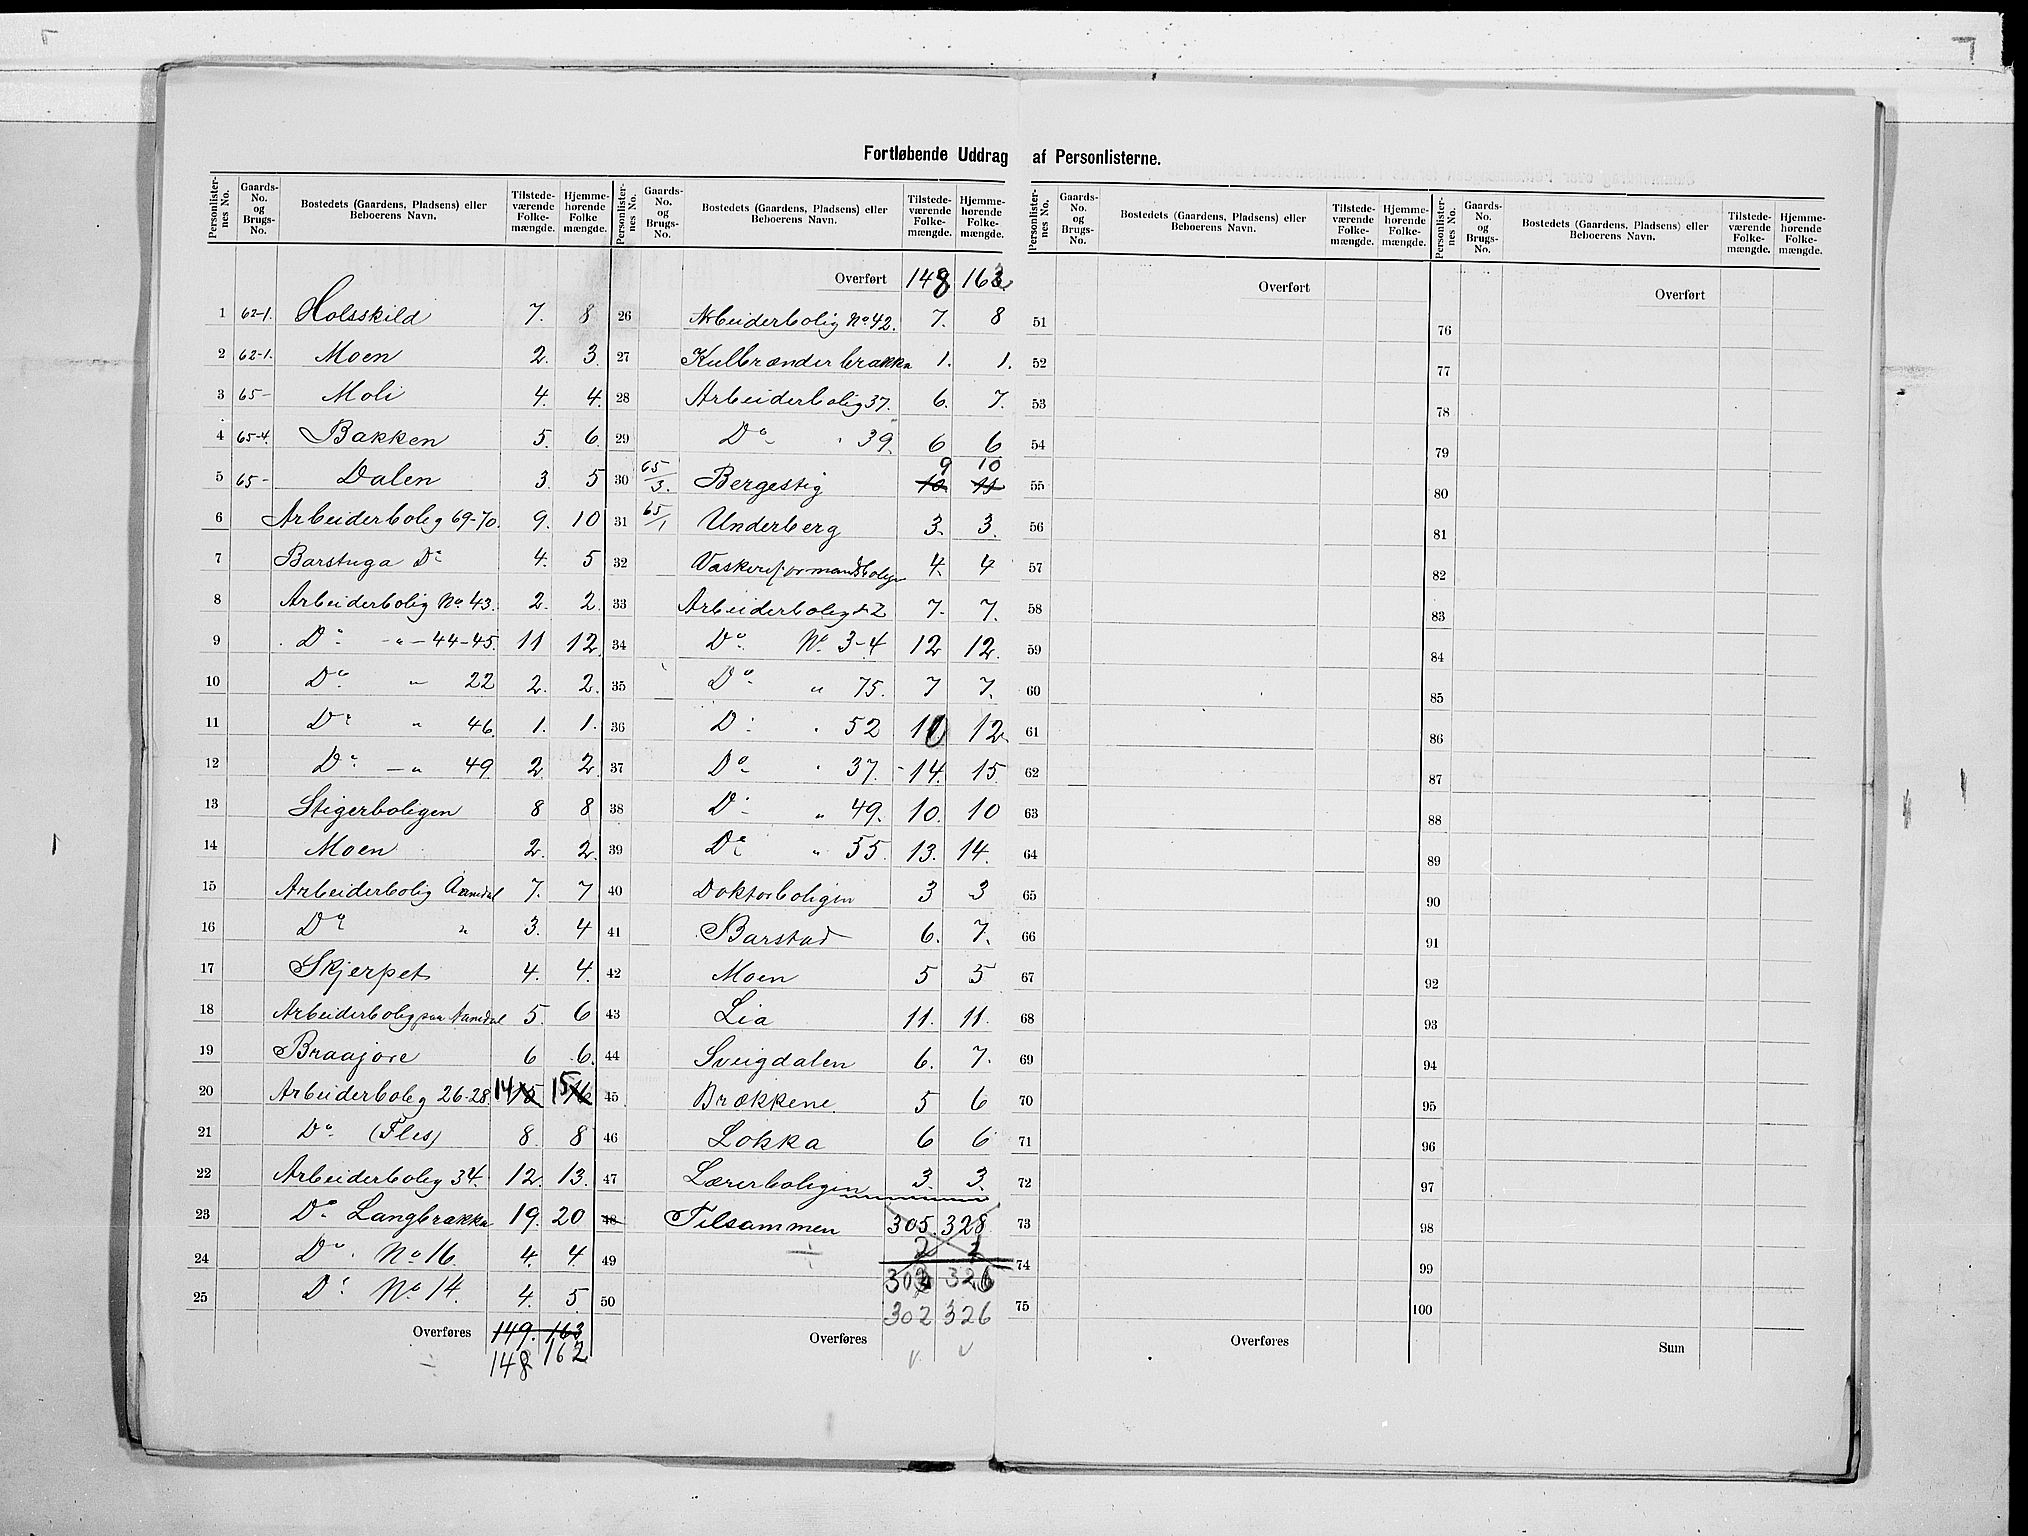 Fortløbende Uddrag af Personlisterne.
Personlister-nes No. Gaards-No. og Brugs-No. Bostedets (Gaardens, Pladsens) eller Beboerens Navn. Tilstede-værende Folke-mængde. Hjemme-hørende Folke mængde.
1 62-1. Holsskild 7. 8
2 62-1. Moen 2. 3.
3 65- Moli 4. 4.
4 65-4. Bakken 5. 6.
5 65- Dalen 3. 5
6 Arbeiderbolig 69-70. 9. 10
7 Barstuga Do 4. 5
8 Arbeiderbolig No. 43. 2. 2.
9 Do - " - 44-45. 11 12.
10 Do " 22 2. 2.
11 Do " 46. 1. 1.
12 Do - " 49 2 2.
13 Stigerboligen 8 8
14 Moen 2. 2.
15 Arbeiderbolig Aamdal 7. 7
16 Do " 3. 4
17 Skjerpet 4. 4.
18 Arbeiderbolig paa Aamdal 5. 6
19 Braajore 6 6.
20 Arbeiderbolig 26-28. 14 15 15 16
21 Do (Fles) 8 8
22 Arbeiderbolig 34. 12. 13.
23 Do Langbrakka 19. 20
24 Do. No 16. 4. 4.
25 Do No 14. 4. 5.
Overføres 149. 163
148 162
Personlister-nes No. Gaards-No. og Brugs-No. Bostedets (Gaardens, Pladsens) eller Beboerens Navn. Tilstede-værende Folke-mængde. Hjemme-hørende Folke-mængde.
Overført 148 162
26 Arbeiderbolig No. 42. 7. 8
27 Kulbrænderbrakka 1. 1.
28 Arbeiderbolig 37. 6. 7.
29 Do " 39. 6 6
30 65/3. Bergestig 9 10 10 11
31 65/1 Underberg 3. 3.
32 Vaskeriformandsboligen 4. 4
33 Arbeiderbolig 7. 7.
34 Do. No. 3-4 12 12.
35 Do " 75. 7 7.
36 Do " 52 10 12
37 Do " 37. 14. 15.
38 Do " 49. 10. 10
39 Do " 55. 13. 14.
40 Doktorboligen 3 3
41 Barstad 6. 7.
42 Moen 5 5
43 Lia 11. 11.
44 Sveigdalen 6. 7.
45 Brækkene. 5 6
46 Lokka 6 6
47 Lærerboligen 3. 3.
48 Tilsammen 305. 328.
÷ 2 2
49 303 326
50 302 326
Overføres
Personlister-nes No. Gaards-No. og Brugs-No. Bostedets (Gaardens, Pladsens) eller Beboerens Navn. Tilstede-værende Folke-mængde. Hjemme-hørende Folke-mængde.
Overført
51
52
53
54
55
56
57
58
59
60
61
62
63
64
65
66
67
68
69
70
71
72
73
74
75
Overføres
Personlister-nes No. Gaards-No. og Brugs-No. Bostedets (Gaardens, Pladsens) eller Beboerens Navn. Tilstede-værende Folke-mængde. Hjemme-hørende Folke-mængde.
Overført
76
77
78
79
80
81
82
83
84
85
86
87
88
89
90
91
92
93
94
95
96
97
98
99
100
Sum